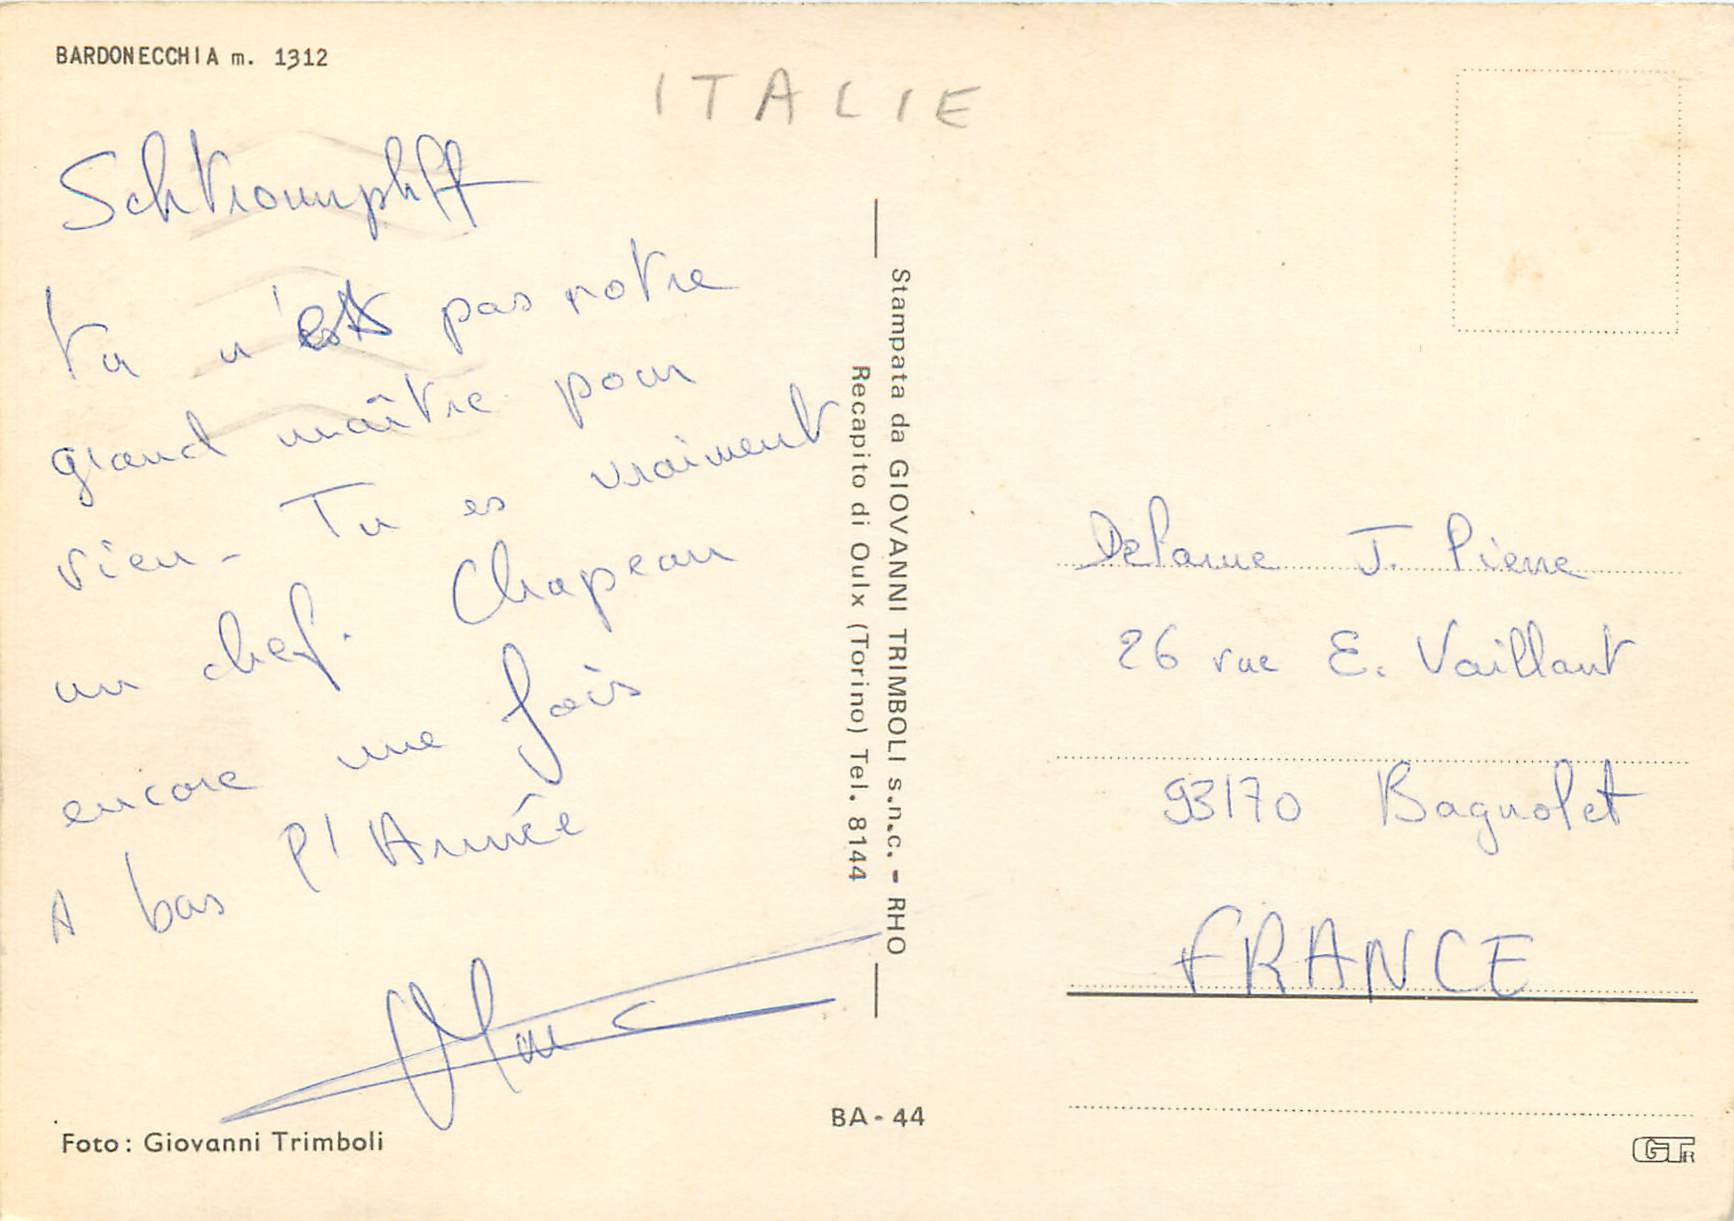 BARDONECCHIA m. 1312
ITALIE
Schtroumphff
tu n'es pas notre
grand maître pour
rien - Tu es vraiment
un chef. Chapeau
encore une fois
A bas l'Armée
Marc
Stampata da GIOVANNI TRIMBOLI s.n.c. - RHO
Recapito di Oulx (Torino) Tel. 8144
J. Pierre
26 rue E. Vaillant
93170 Bagnolet
FRANCE
BA - 44
Foto: Giovanni Trimboli
GTR